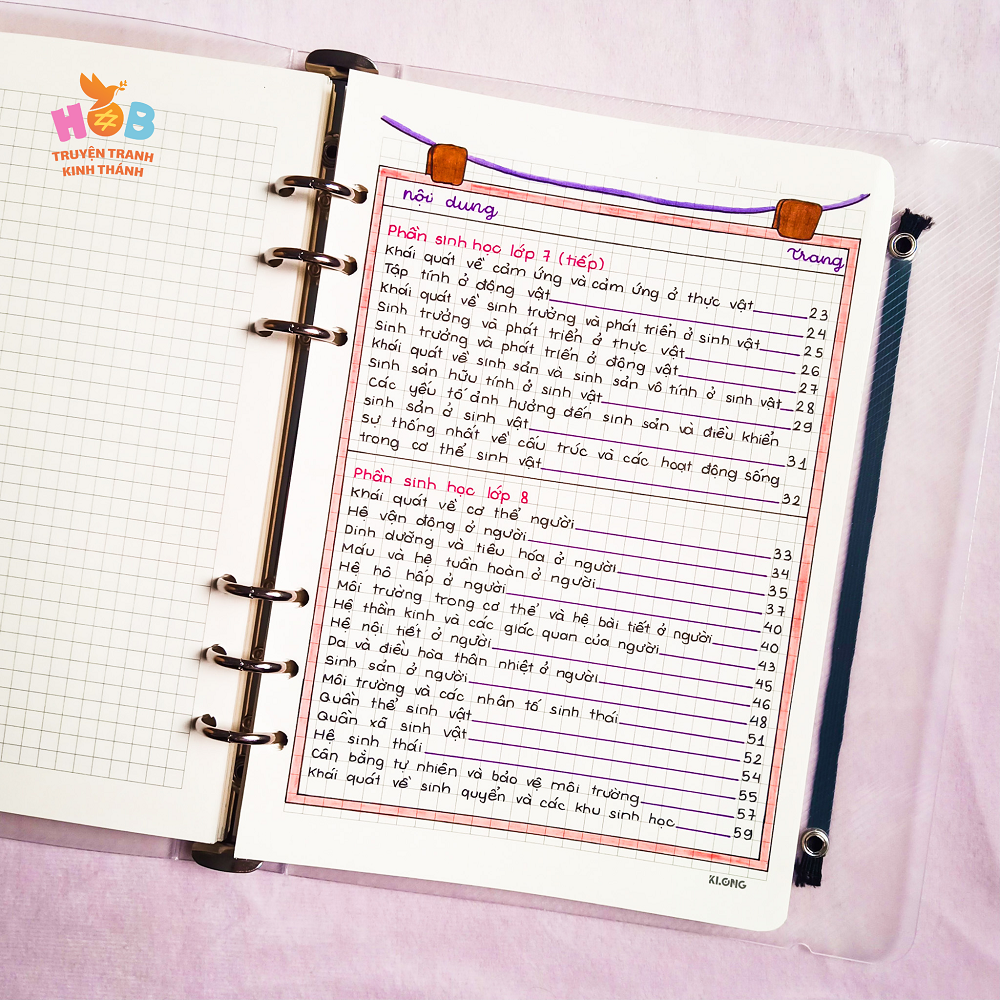 HOB
TRUYỆN TRANH
KINH THÁNH
nội dung
trang
Phần sinh học lớp 7 (tiếp)
Khái quát về cảm ứng và cảm ứng ở thực vật 23
Tập tính ở động vật 24
Khái quát về sinh trưởng và phát triển ở sinh vật 25
Sinh trưởng và phát triển ở thực vật 26
Sinh trưởng và phát triển ở động vật 27
Khái quát về sinh sản và sinh sản vô tính ở sinh vật 28
Sinh sản hữu tính ở sinh vật 29
Các yếu tố ảnh hưởng đến sinh sản và điều khiển
sinh sản ở sinh vật 31
Sự thống nhất về cấu trúc và các hoạt động sống
trong cơ thể sinh vật 32
Phần sinh học lớp 8
Khái quát về cơ thể người 33
Hệ vận động ở người 34
Dinh dưỡng và tiêu hóa ở người 35
Máu và hệ tuần hoàn ở người 37
Hệ hô hấp ở người 40
Môi trường trong cơ thể và hệ bài tiết ở người 40
Hệ thần kinh và các giác quan của người 43
Hệ nội tiết ở người 45
Da và điều hòa thân nhiệt ở người 46
Sinh sản ở người 48
Môi trường và các nhân tố sinh thái 51
Quần thể sinh vật 52
Quần xã sinh vật 54
Hệ sinh thái 55
Cân bằng tự nhiên và bảo vệ môi trường 57
Khái quát về sinh quyển và các khu sinh học 59
KLONG